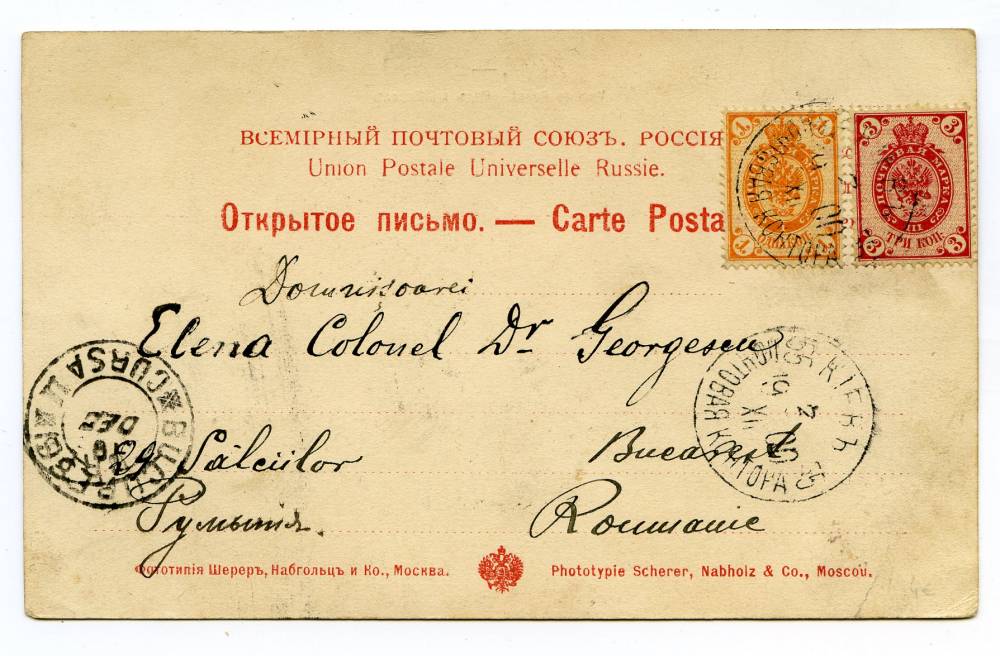 ВСЕМІРНЫЙ ПОЧТОВЫЙ СОЮЗЪ. РОССІЯ
Union Postale Universelle Russie.
Открытое письмо. — Carte Posta
1 1
МАРКА
1 1
3 3
ПОЧТОВАЯ МАРКА
III
3 ТРИ КОП. 3
Domnisoarei
Elena Colonel Dr Georgescu
29 Salciilor Bucarest
Румынія. Roumanie
КІЕВЪ
ПОЧТОВАЯ КОНТОРА
19 XI
2
BUCURESCI
CURSA II
DEC
Фототипія Шереръ, Набгольцъ и Ко., Москва.
Phototypie Scherer, Nabholz & Co., Moscou.